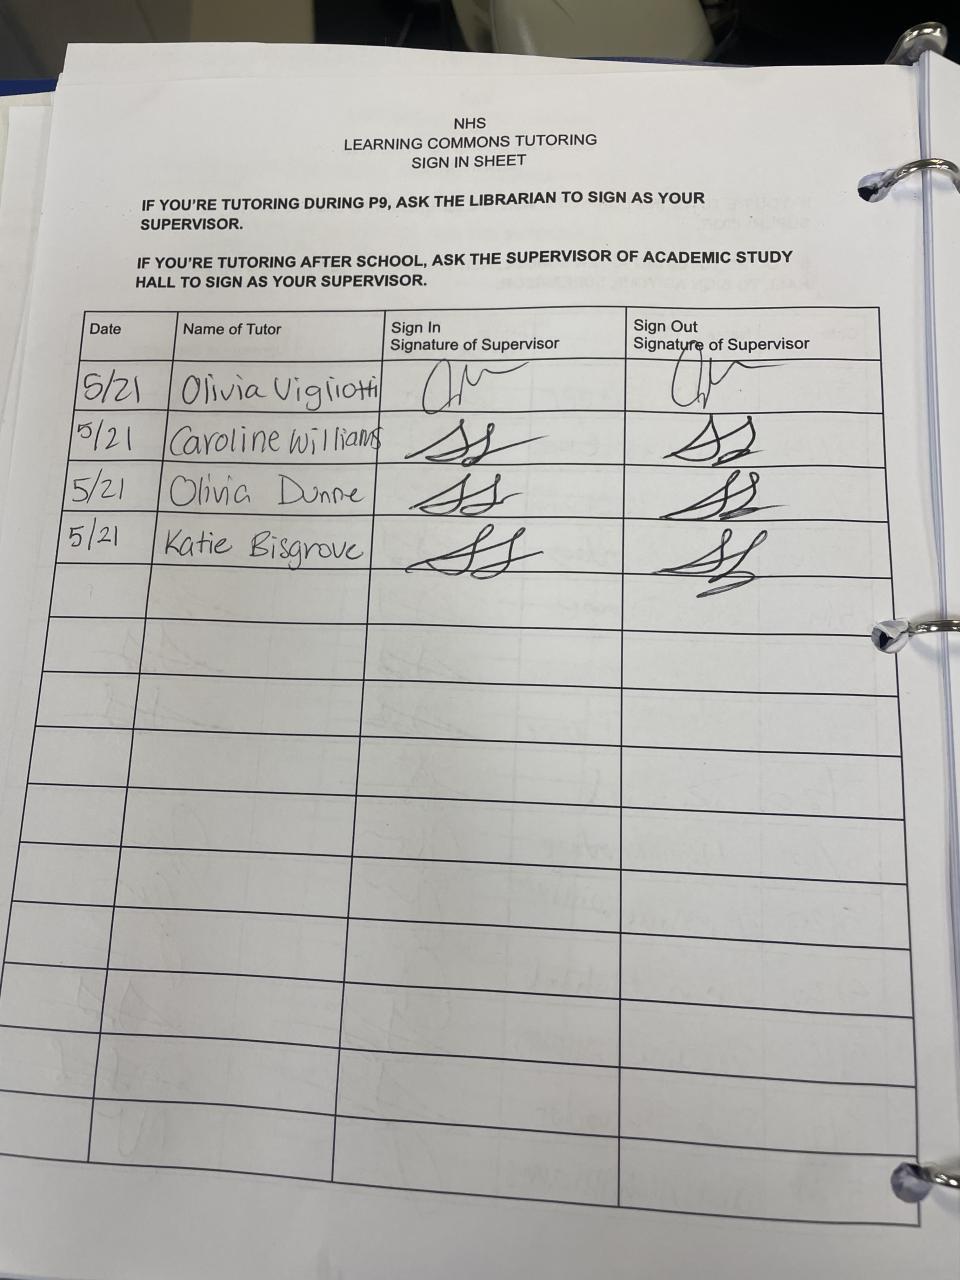 NHS
LEARNING COMMONS TUTORING
SIGN IN SHEET
IF YOU'RE TUTORING DURING P9, ASK THE LIBRARIAN TO SIGN AS YOUR
SUPERVISOR.
IF YOU'RE TUTORING AFTER SCHOOL, ASK THE SUPERVISOR OF ACADEMIC STUDY
HALL TO SIGN AS YOUR SUPERVISOR.
Date Name of Tutor Sign In Sign Out
Signature of Supervisor Signature of Supervisor
5/21 Olivia Vigliotti
5/21 Caroline Williams
5/21 Olivia Dunne
5/21 Katie Bisgrove